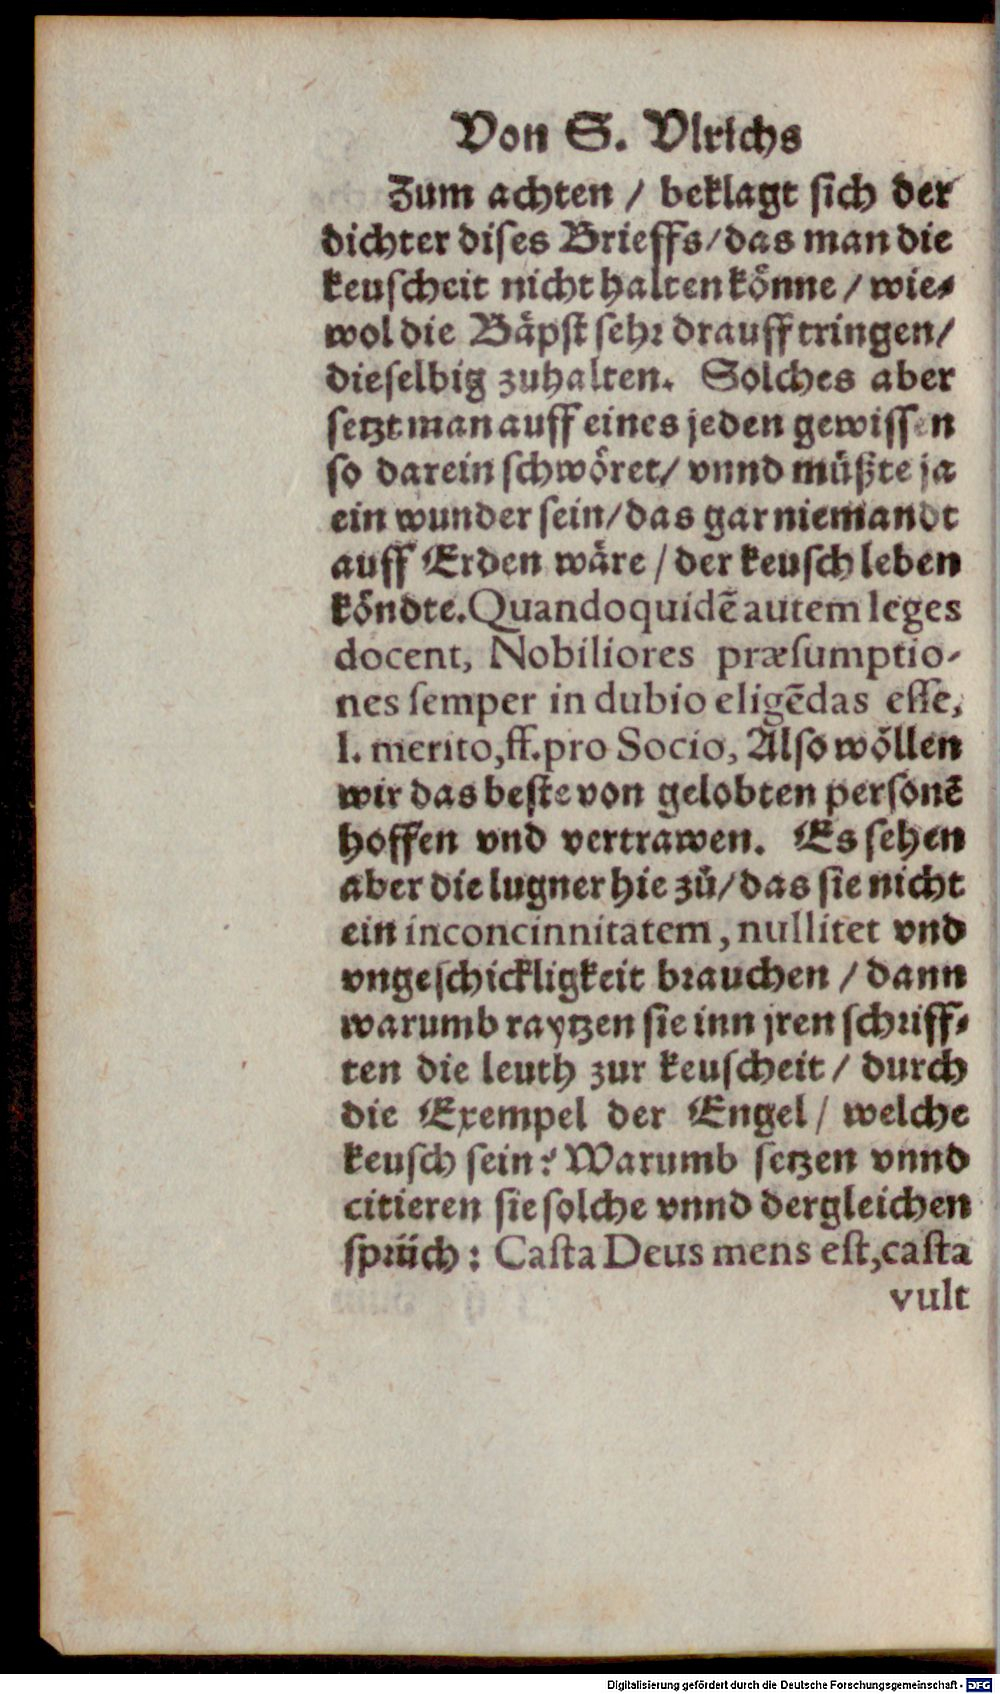 Von S. Vlrichs
Zum achten / beklagt sich der
dichter dises Brieffs/das man die
keuscheit nicht halten könne / wie-
wol die Bäpst sehr drauff tringen/
dieselbig zuhalten. Solches aber
setzt man auff eines jeden gewissen
so darein schwöret/ vnnd müßte ja
ein wunder sein/das gar niemandt
auff Erden wäre / der keusch leben
köndte. Quandoquidē autem leges
docent, Nobiliores præsumptio-
nes semper in dubio eligēdas esse,
l. merito,ff.pro Socio, Also wöllen
wir das beste von gelobten personē
hoffen vnd vertrawen. Es sehen
aber die lugner hie zů/das sie nicht
ein inconcinnitatem, nullitet vnd
vngeschickligkeit brauchen / dann
warumb raytzen sie inn jren schriff-
ten die leuth zur keuscheit / durch
die Exempel der Engel / welche
keusch sein? Warumb setzen vnnd
citieren sie solche vnnd dergleichen
sprüch : Casta Deus mens est,casta
vult
Digitalisierung gefördert durch die Deutsche Forschungsgemeinschaft - DFG